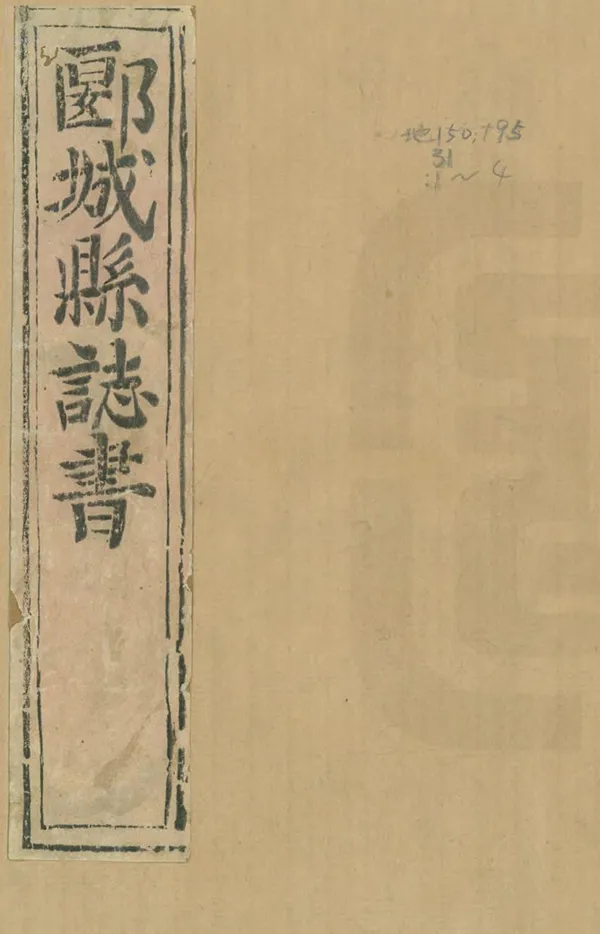 郾城縣誌書
地150.795
31
:1～4